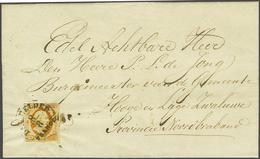 Edel Achtbare Heer
Den Heere S. S. de Jong
Burgemeester van de Gemeente
Hooge en Lage Zwaluwe
Provincie Noordbraband